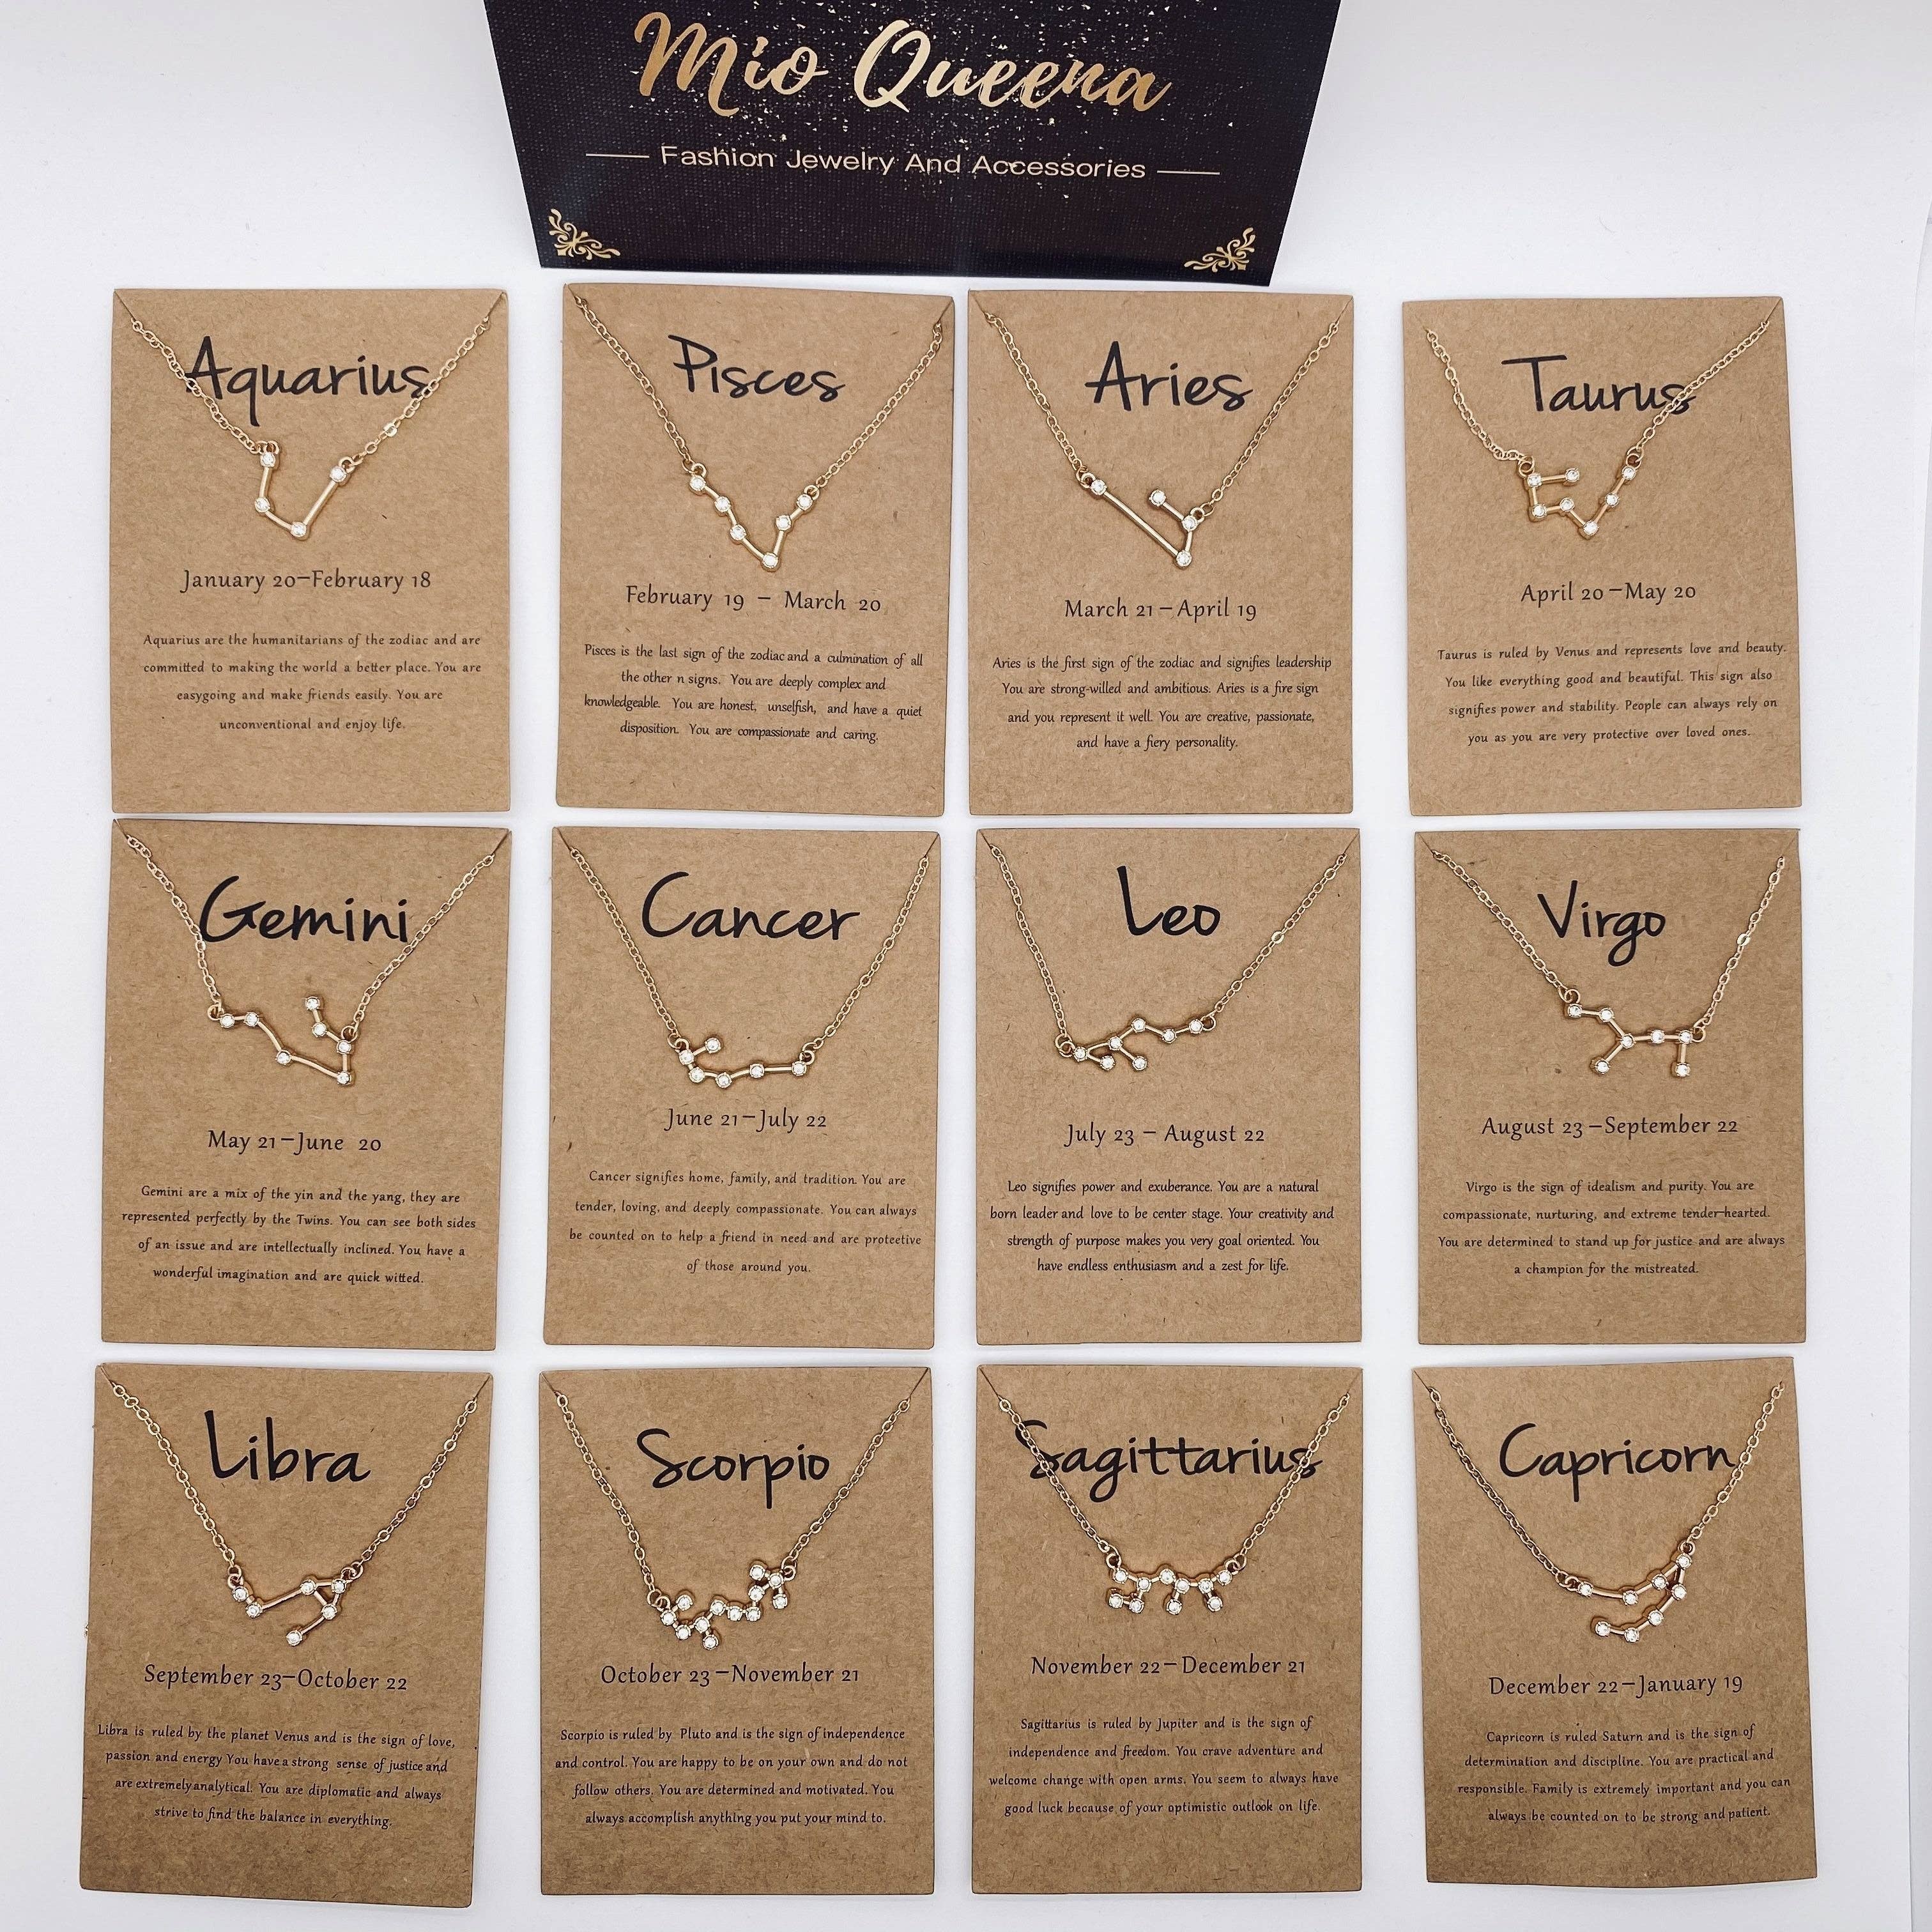 Mio Queena
Fashion Jewelry And Accessories
Aquarius
January 20–February 18
Aquarius are the humanitarians of the zodiac and are
committed to making the world a better place. You are
easygoing and make friends easily. You are
unconventional and enjoy life.
Pisces
February 19 – March 20
Pisces is the last sign of the zodiac and a culmination of all
the other n signs. You are deeply complex and
knowledgeable. You are honest, unselfish, and have a quiet
disposition. You are compassionate and caring.
Aries
March 21–April 19
Aries is the first sign of the zodiac and signifies leadership
You are strong-willed and ambitious. Aries is a fire sign
and you represent it well. You are creative, passionate,
and have a fiery personality.
Taurus
April 20–May 20
Taurus is ruled by Venus and represents love and beauty.
You like everything good and beautiful. This sign also
signifies power and stability. People can always rely on
you as you are very protective over loved ones.
Gemini
May 21–June 20
Gemini are a mix of the yin and the yang, they are
represented perfectly by the Twins. You can see both sides
of an issue and are intellectually inclined. You have a
wonderful imagination and are quick witted.
Cancer
June 21–July 22
Cancer signifies home, family, and tradition. You are
tender, loving, and deeply compassionate. You can always
be counted on to help a friend in need and are protective
of those around you.
Leo
July 23 – August 22
Leo signifies power and exuberance. You are a natural
born leader and love to be center stage. Your creativity and
strength of purpose makes you very goal oriented. You
have endless enthusiasm and a zest for life.
Virgo
August 23–September 22
Virgo is the sign of idealism and purity. You are
compassionate, nurturing, and extreme tender-hearted.
You are determined to stand up for justice and are always
a champion for the mistreated.
Libra
September 23–October 22
Libra is ruled by the planet Venus and is the sign of love,
passion and energy You have a strong sense of justice and
are extremely analytical. You are diplomatic and always
strive to find the balance in everything.
Scorpio
October 23–November 21
Scorpio is ruled by Pluto and is the sign of independence
and control. You are happy to be on your own and do not
follow others. You are determined and motivated. You
always accomplish anything you put your mind to.
Sagittarius
November 22–December 21
Sagittarius is ruled by Jupiter and is the sign of
independence and freedom. You crave adventure and
welcome change with open arms. You seem to always have
good luck because of your optimistic outlook on life.
Capricorn
December 22–January 19
Capricorn is ruled Saturn and is the sign of
determination and discipline. You are practical and
responsible. Family is extremely important and you can
always be counted on to be strong and patient.